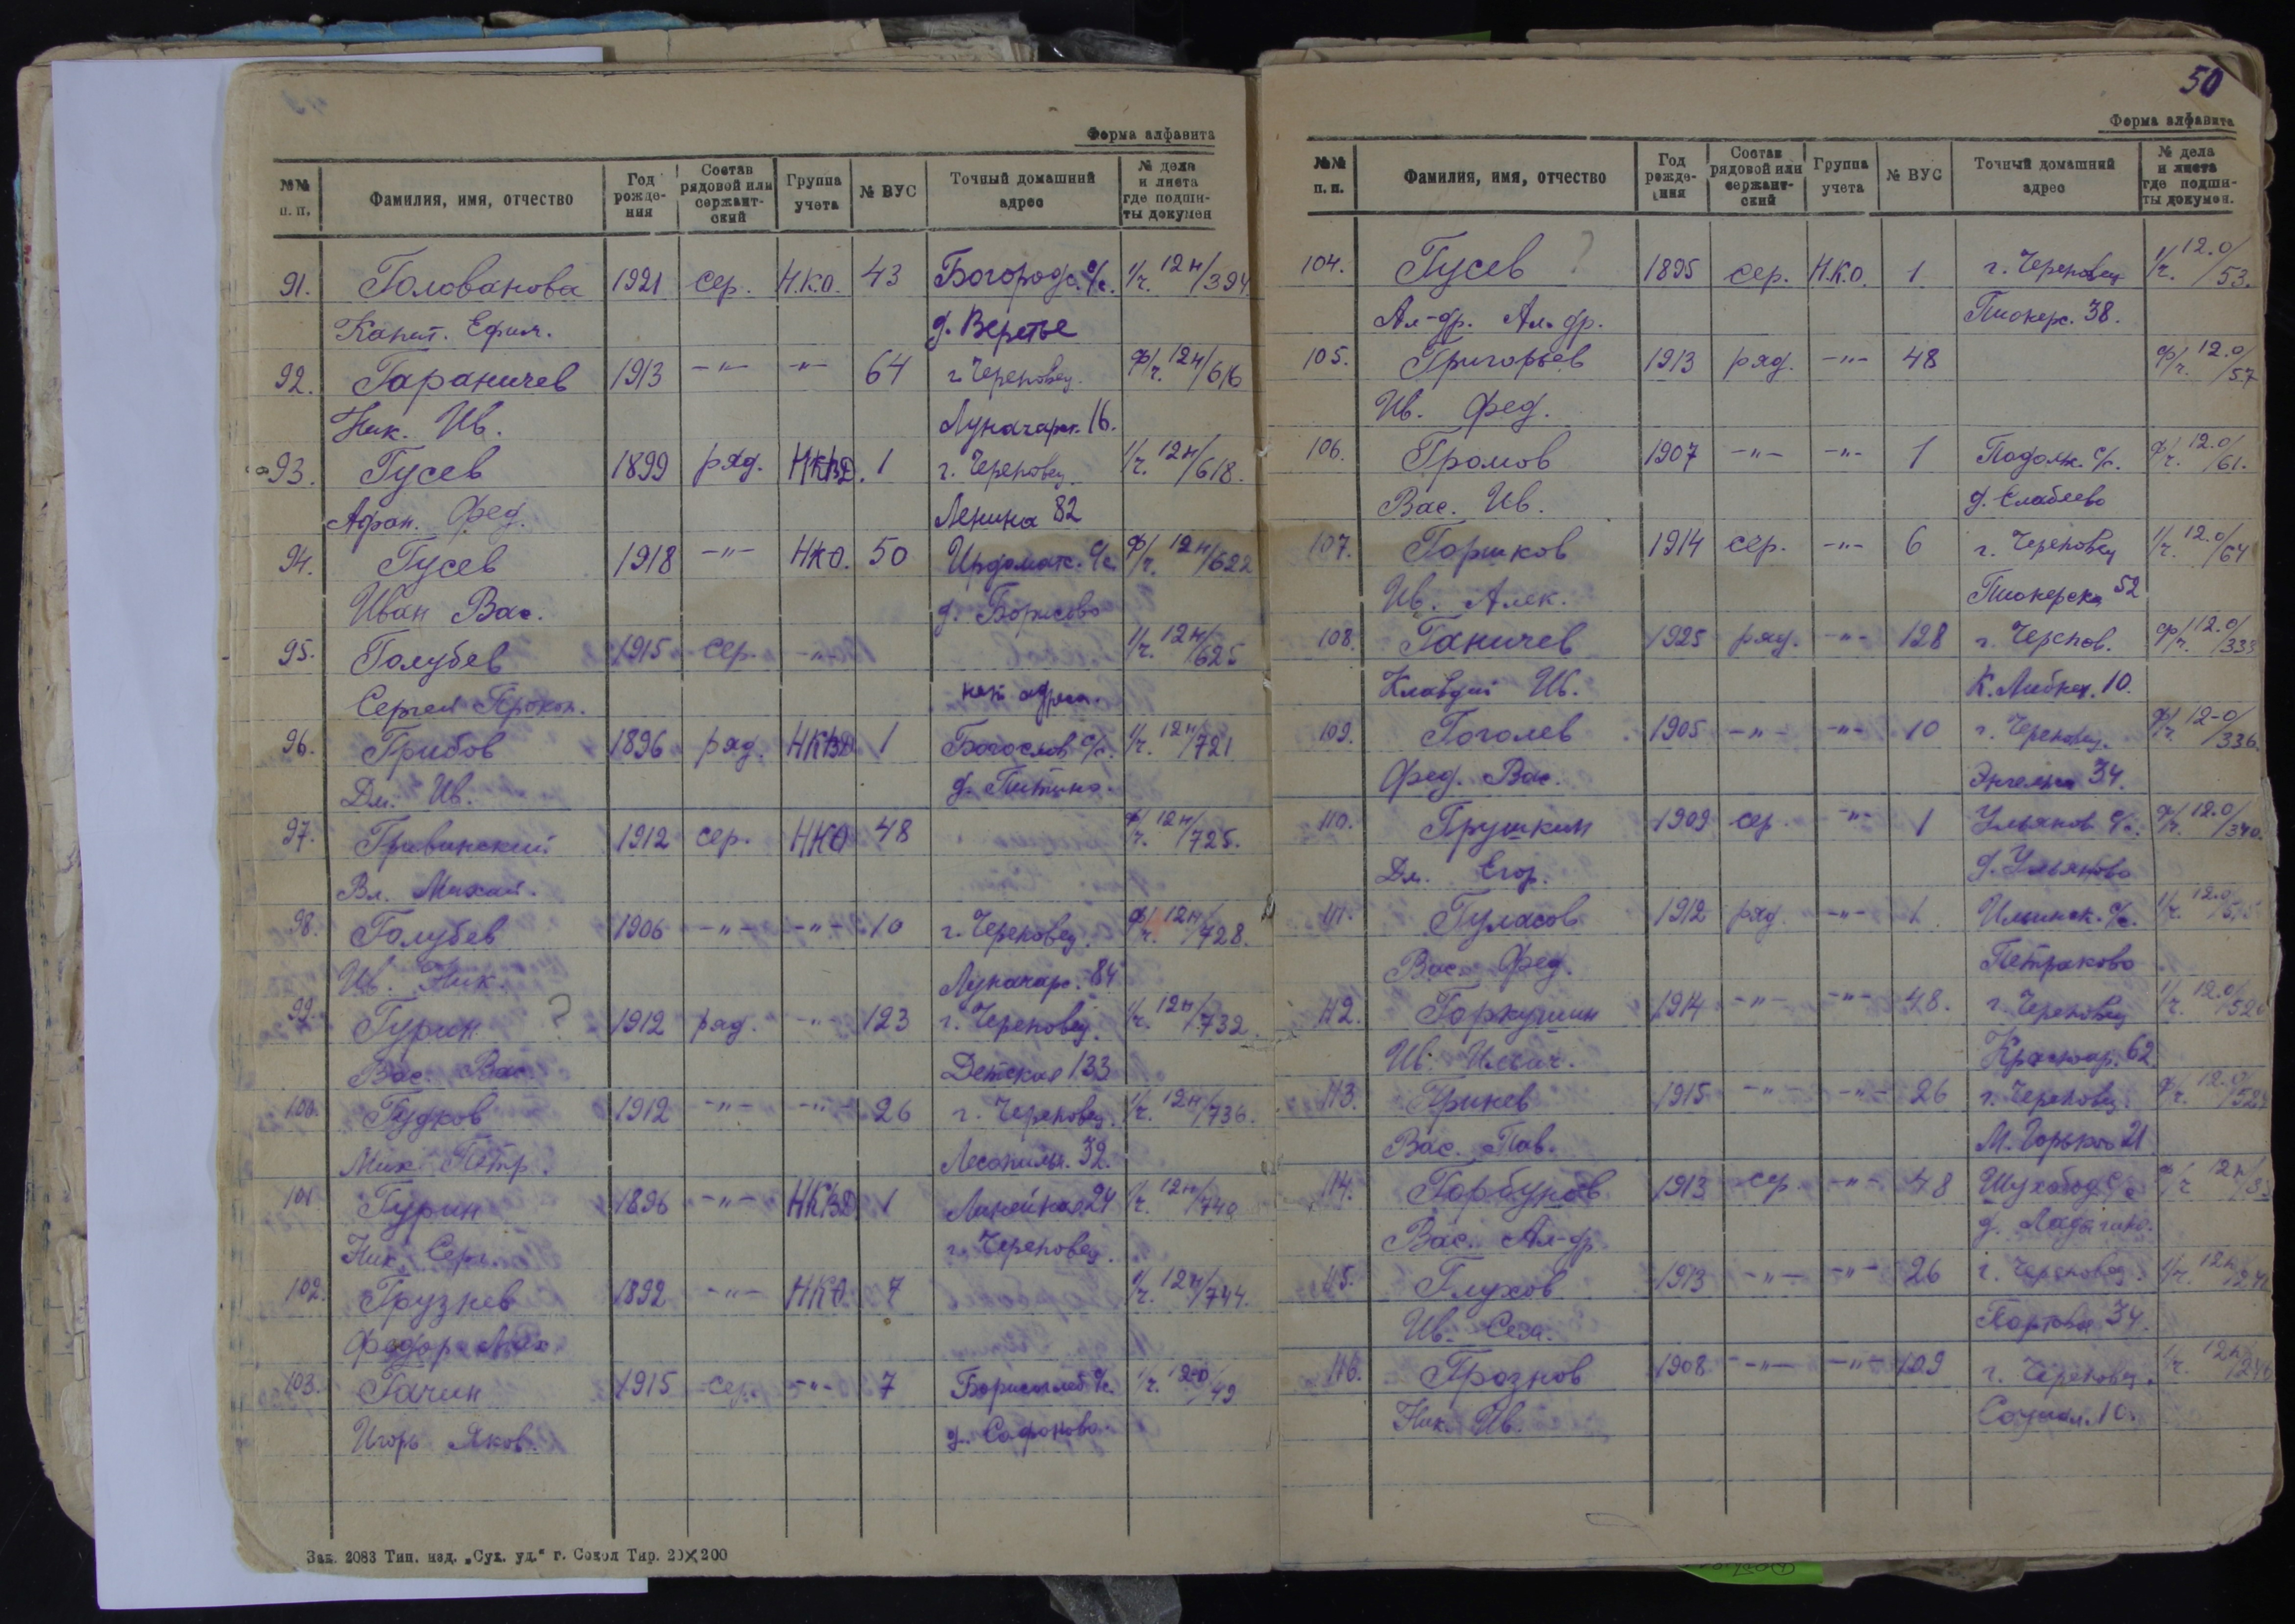 Форма алфавита
№№ п. п. Фамилия, имя, отчество Год рожде-ния Состав рядовой или сержант-ский Группа учета № ВУС Точный домашний адрес № дела и листа где подши-ты докумен
91. Голованова 1921 сер. Н.К.О. 43 Богородс. с/с. 1/ч. 12н/394
Капит. Ефим. д. Веретье
92. Гараничев 1913 -"- -"- 64 г. Череповец. ф/ч. 12н/616
Ник. Ив. Луначарск. 16.
93. Гусев 1899 ряд. НКВД. 1 г. Череповец. 1/ч. 12н/618.
Афан. Фед. Ленина 82
94. Гусев 1918 -"- НКО. 50 Ирдомак. с/с. ф/ч. 12н/622
Иван Вас. д. Борисово
95. Голубев 1915 сер. -"- 1/ч. 12н/625
Сергей Прокоп. нет адреса.
96. Грибов 1896 ряд. НКВД 1 Богослов с/с. 1/ч. 12н/721
Дм. Ив. д. Питино.
97. 1912 сер. НКО 48 ф/ч. 12н/725.
Вл. Михай.
98. Голубев 1906 -"- -"- 10 г. Череповец. ф/ч. 12н/728.
Ив. Ник. Луначарс. 84
99. Гурин ? 1912 ряд. -"- 123 г. Череповец. 1/ч. 12н/732.
Вас. Вас. Детская 133
100. Гудков 1912 -"- -"- 26 г. Череповец. 1/ч. 12н/736.
Мих. Петр. Лесопильн. 32.
101. Гурин 1896 -"- НКВД 1 Линейная 24 1/ч. 12н/740
Ник. Серг. г. Череповец.
102. Грузнев 1892 -"- НКО. 7 1/ч. 12н/744.
Федор
103. Гачин 1915 сер. -"- 7 Борисоглеб с/с. 1/ч. 12-0/49
Игорь Яков. д. Сафоново.
Зак. 2083 Тип. изд. „Сух. уд." г. Сокол Тир. 20×200
50
Форма алфавита
№№ п. п. Фамилия, имя, отчество Год рожде-ния Состав рядовой или сержант-ский Группа учета № ВУС Точный домашний адрес № дела и листа где подши-ты докумен.
104. Гусев ? 1895 сер. Н.К.О. 1 г. Череповец 1/ч. 12.0/53.
Ал-др. Ал-др. Пионерс. 38.
105. Григорьев 1913 ряд. -"- 48 ф/ч. 12.0/57
Ив. Фед.
106. Громов 1907 -"- -"- 1 Подолж. с/с. ф/ч. 12.0/61.
Вас. Ив. д. Елабеево
107. Горшков 1914 сер. -"- 6 г. Череповец 1/ч. 12.0/64
Ив. Алек. Пионерска 52
108. Ганичев 1925 ряд. -"- 128 г. Черепов. ф/ч. 12.0/333
Клавдий Ив. К. Либкн. 10.
109. Гоголев 1905 -"- -"- 10 г. Череповец. ф/ч. 12-0/336.
Фед. Вас. Энгельса 34.
110. Грушкин 1909 сер. -"- 1 Ульянов с/с. ф/ч. 12.0/340.
Дм. Егор. д. Ульяново
111. Гуласов 1912 ряд. -"- 1. 1/ч. 12.0
Вас. Фед. Петраково
112. Горкушин 1914 -"- -"- 48. г. Череповец 1/ч. 12.0
Ив. Ильич. Красноар. 62
113. Гринев 1915 -"- -"- 26 г. Череповец. ф/ч. 12.0
Вас. Пав. М. Горького 21
114. Горбунов 1913 сер. -"- 48 Шухобод. с/с ф/ч 12н
Вас. Ал-др д. Ладыгино.
115. Глухов 1913 -"- -"- 26 г. Череповец. 1/ч. 12н
Ив. Сем. Портовая 34.
116. Грознов 1908 -"- -"- 109 г. Череповец. 1/ч. 12н
Ник. Ив. Социал. 10.